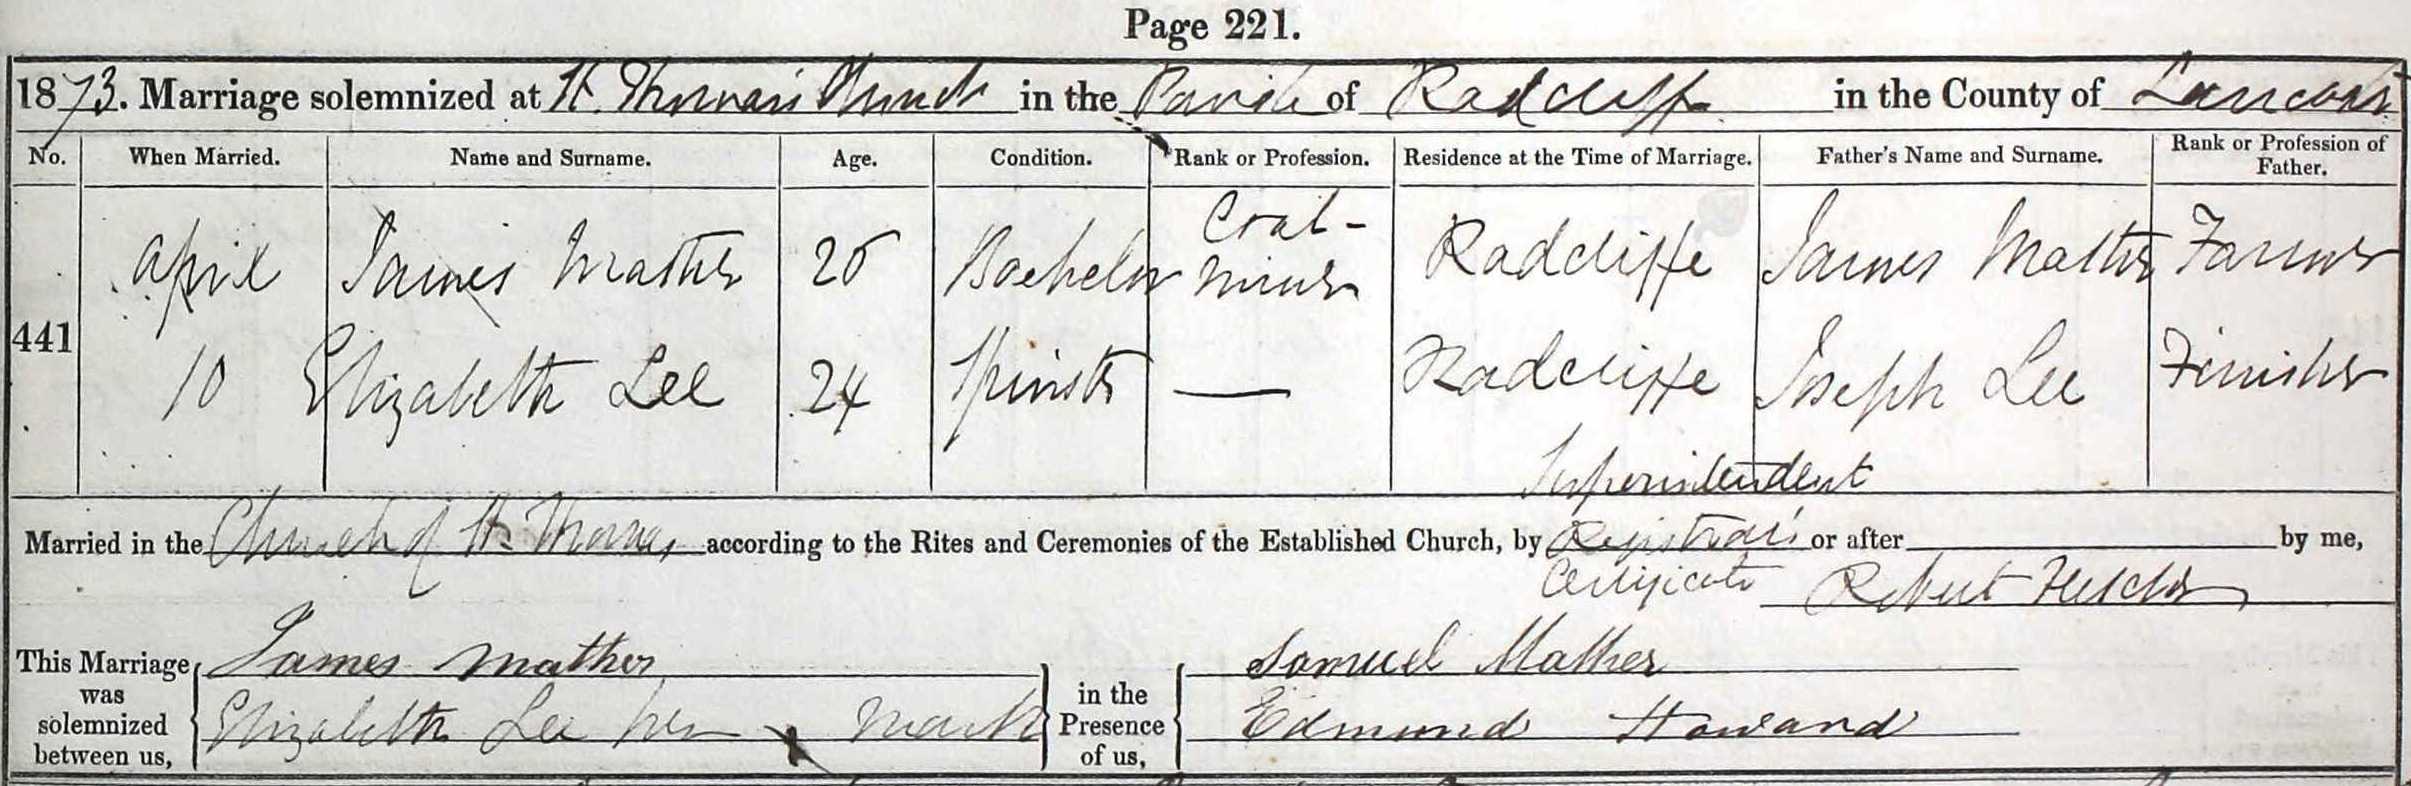 Page 221.
1873. Marriage solemnized at St. Thomas's Church in the Parish of Radcliffe in the County of Lancaster
No. When Married. Name and Surname. Age. Condition. Rank or Profession. Residence at the Time of Marriage. Father's Name and Surname. Rank or Profession of Father.
441 April 10
James Mather 25 Bachelor Coal-miner Radcliffe James Mather Farmer
Elizabeth Lee 24 Spinster — Radcliffe Joseph Lee Finisher
Married in the Church of St. Thomas according to the Rites and Ceremonies of the Established Church, by Superintendent Registrar's Certificate or after by me,
Robert Fletcher
This Marriage was solemnized between us, James Mather
Elizabeth Lee her x mark
in the Presence of us, Samuel Mather
Edmund Howard